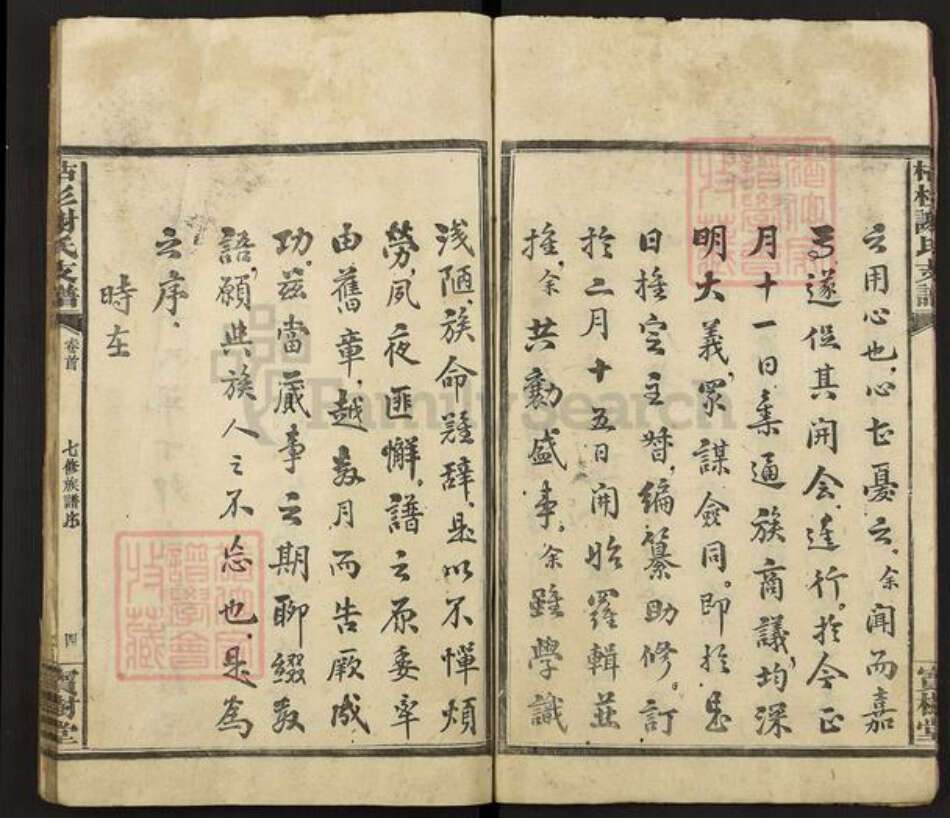 之用心也,心乎憂之,余聞而嘉
焉遂促其開會進行,於今正
月十一日集通族商議,均深
明大義,眾謀僉同。即於是
日推定主督,編纂助修。訂
於二月十五日開始羅輯並
推,余共勷盛事。余雖學識
枯杉謝氏支譜
寶樹堂
淺陋,族命難辭,是以不憚煩
勞,夙夜匪懈。譜之原委率
由舊章,越數月而告厥成
功。茲當蕆事之期聊綴數
語,願與族人之不忘也,是為
之序,
時在
枯杉謝氏支譜
卷首
七修族譜序
四
寶樹堂
FamilySearch